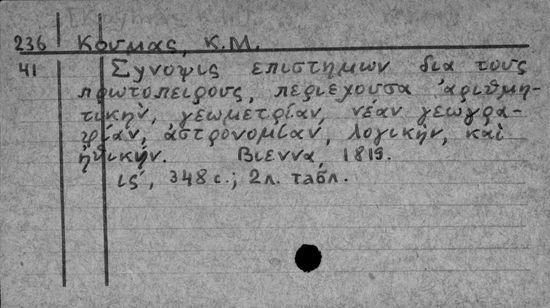 236 Κουμας, Κ.Μ.
41 Συνοψις επιστημων δια τους
πρωτοπειρους, περιεχουσα ἀριθμη-
τικὴν, γεωμετρίαν, νέαν γεωγρα-
φίαν, ἀστρονομίαν, λογικὴν, καὶ
ἠθικήν. Βιεννα, 1819.
ις´, 348 с.; 2 л. табл.